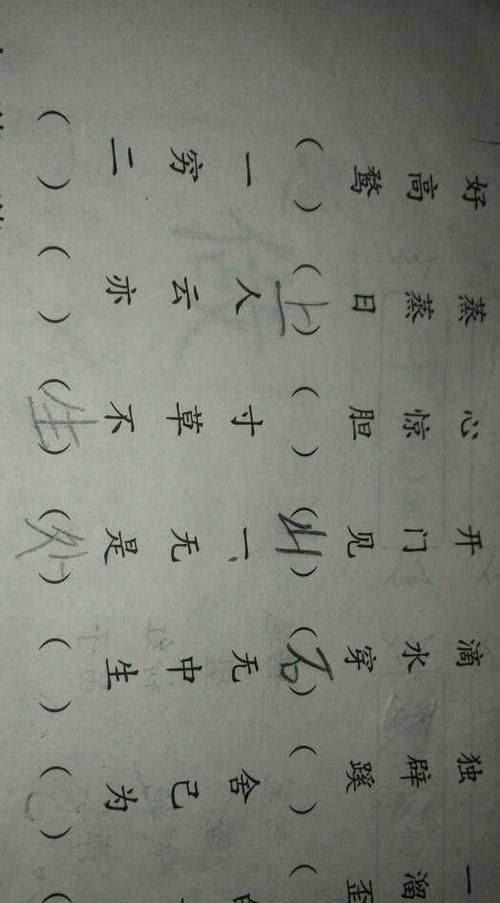 好高骛（ ）
蒸蒸日（上）
心惊胆（ ）
开门见（山）
滴水穿（石）
独辟蹊（ ）
一溜歪（
一穷二（ ）
人云亦（ ）
寸草不（生）
一无是（处）
无中生（ ）
舍己为（ ）